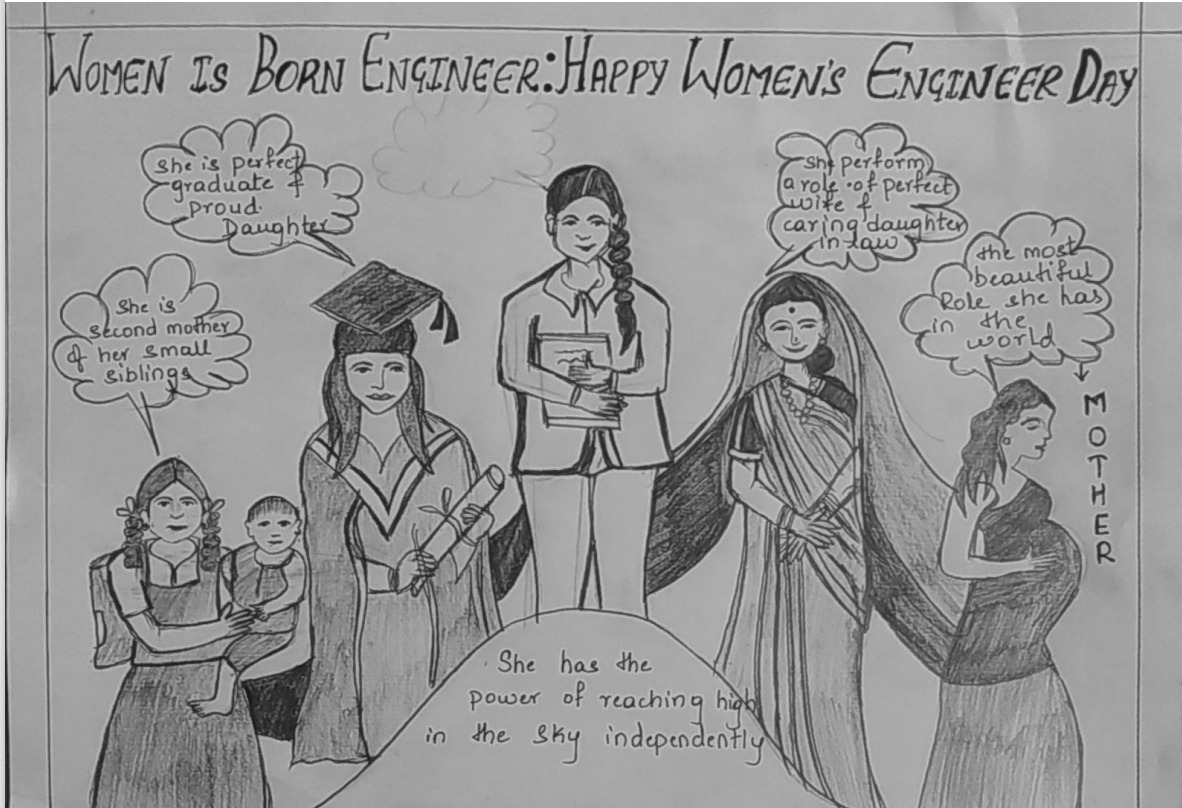 WOMEN IS BORN ENGINEER: HAPPY WOMEN'S ENGINEER DAY
She is
second mother
of her small
siblings
She is perfect
graduate &
proud
Daughter
She perform
a role of perfect
wife &
caring daughter
in law
the most
beautiful
Role she has
in the
world
MOTHER
She has the
power of reaching high
in the sky independently